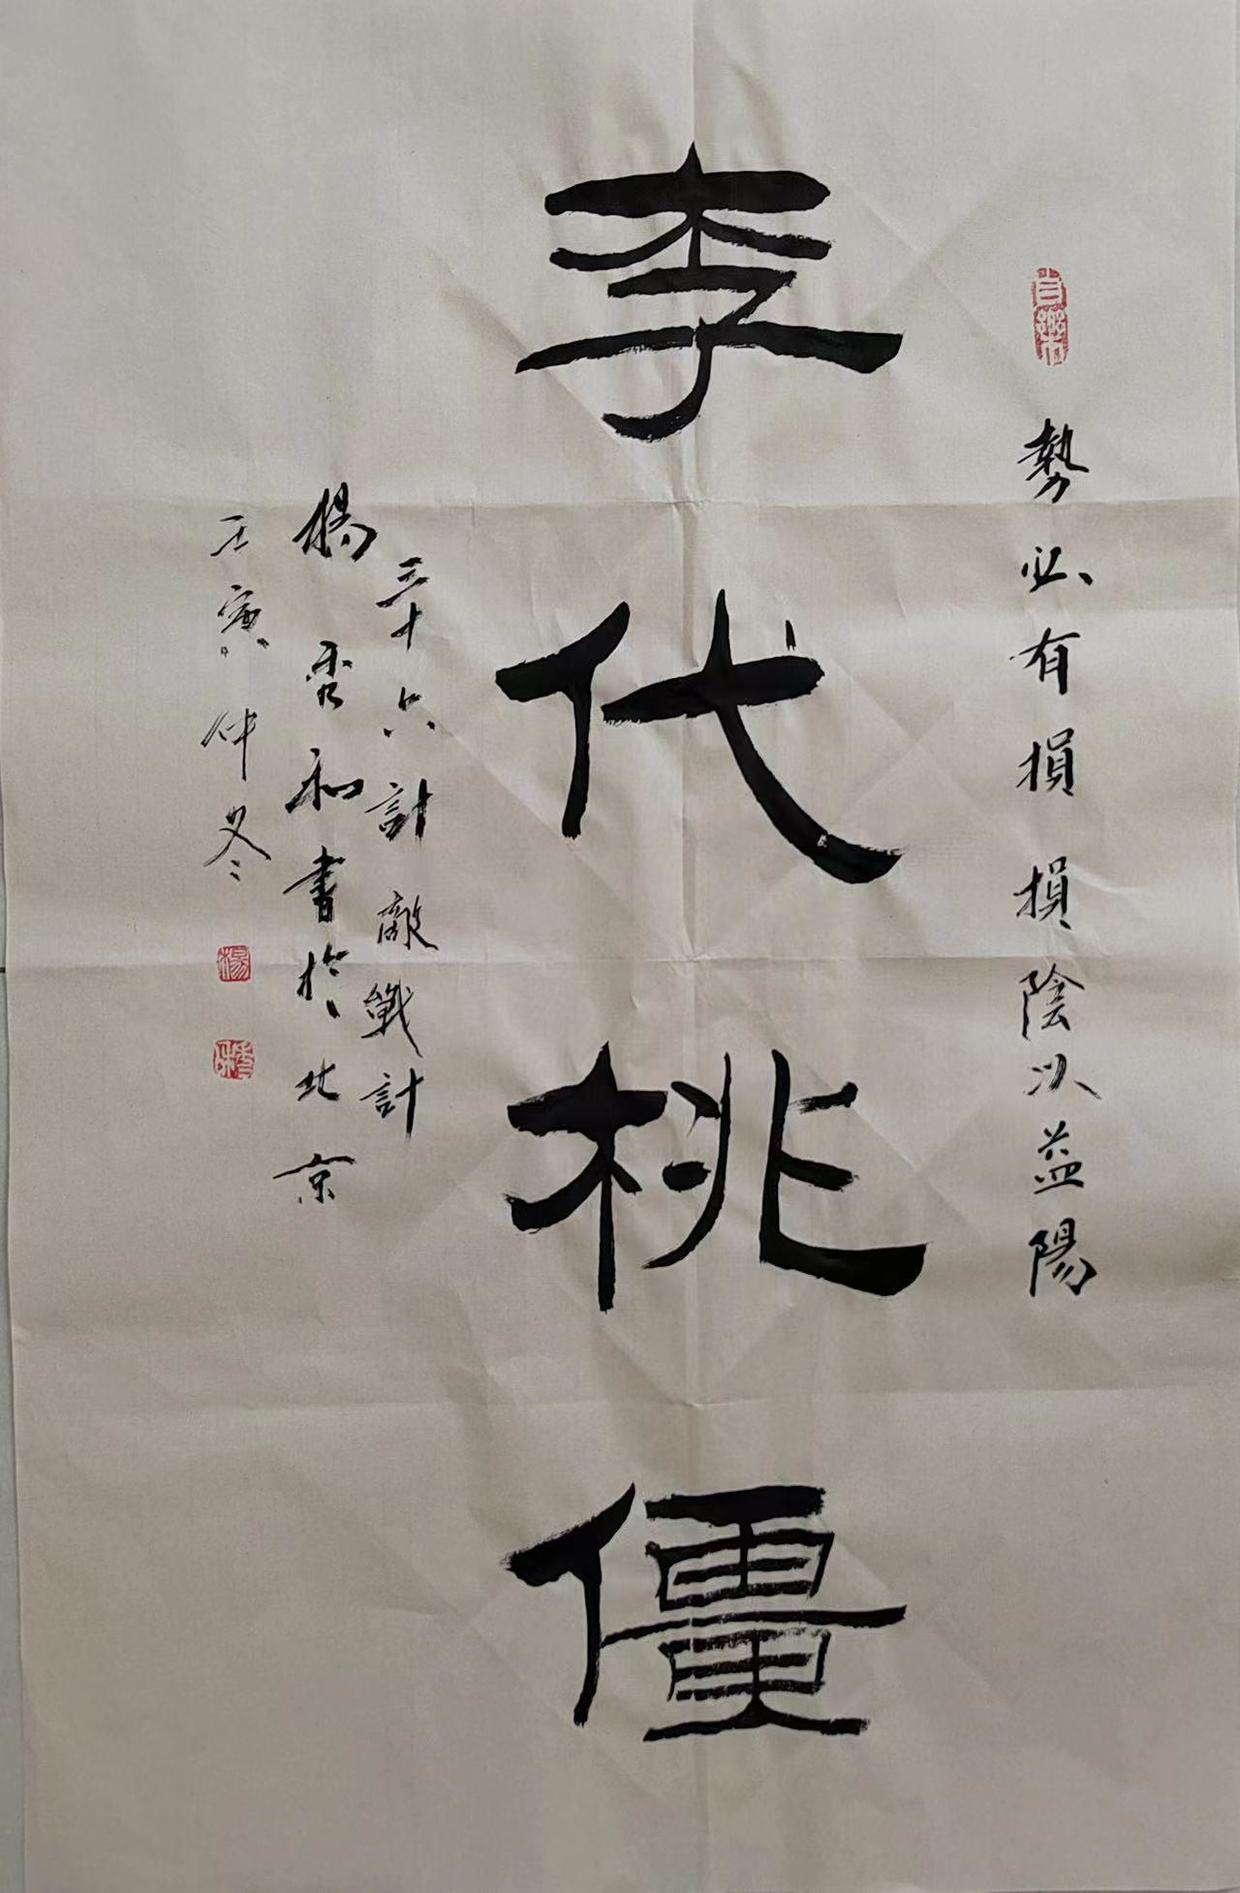 勢必有損損陰以益陽
李代桃僵
三十六計敵戰計
楊秀和書於北京
壬寅仲冬
楊
秀和